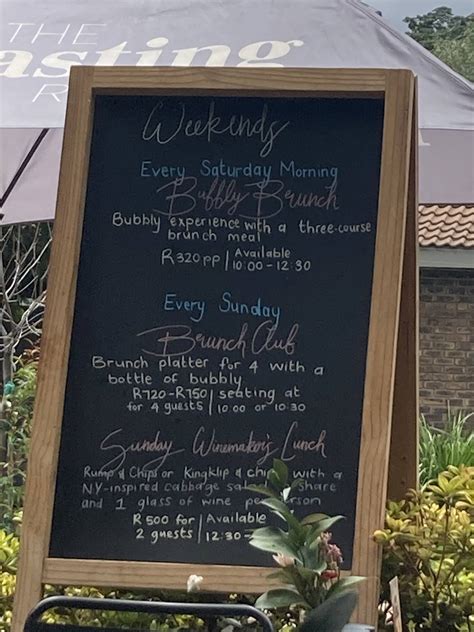 THE
asting
R
Weekends
Every Saturday Morning
Bubbly Brunch
Bubbly experience with a three-course
brunch meal
R320 pp | Available
10:00 - 12:30
Every Sunday
Brunch Club
Brunch platter for 4 with a
bottle of bubbly
R720-R750 | seating at
for 4 guests | 10:00 or 10:30
Sunday Winemaker's Lunch
Rump & Chips or Kingklip & chips with a
NY-inspired cabbage share
and 1 glass of wine per person
R500 for | Available
2 guests | 12:30 -